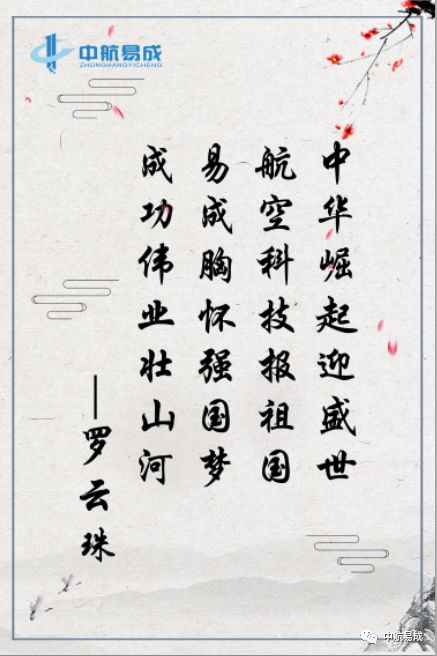 中航易成
ZHONGHANGYICHENG
中华崛起迎盛世
航空科技报祖国
易成胸怀强国梦
成功伟业壮山河
—罗云珠
中航易成